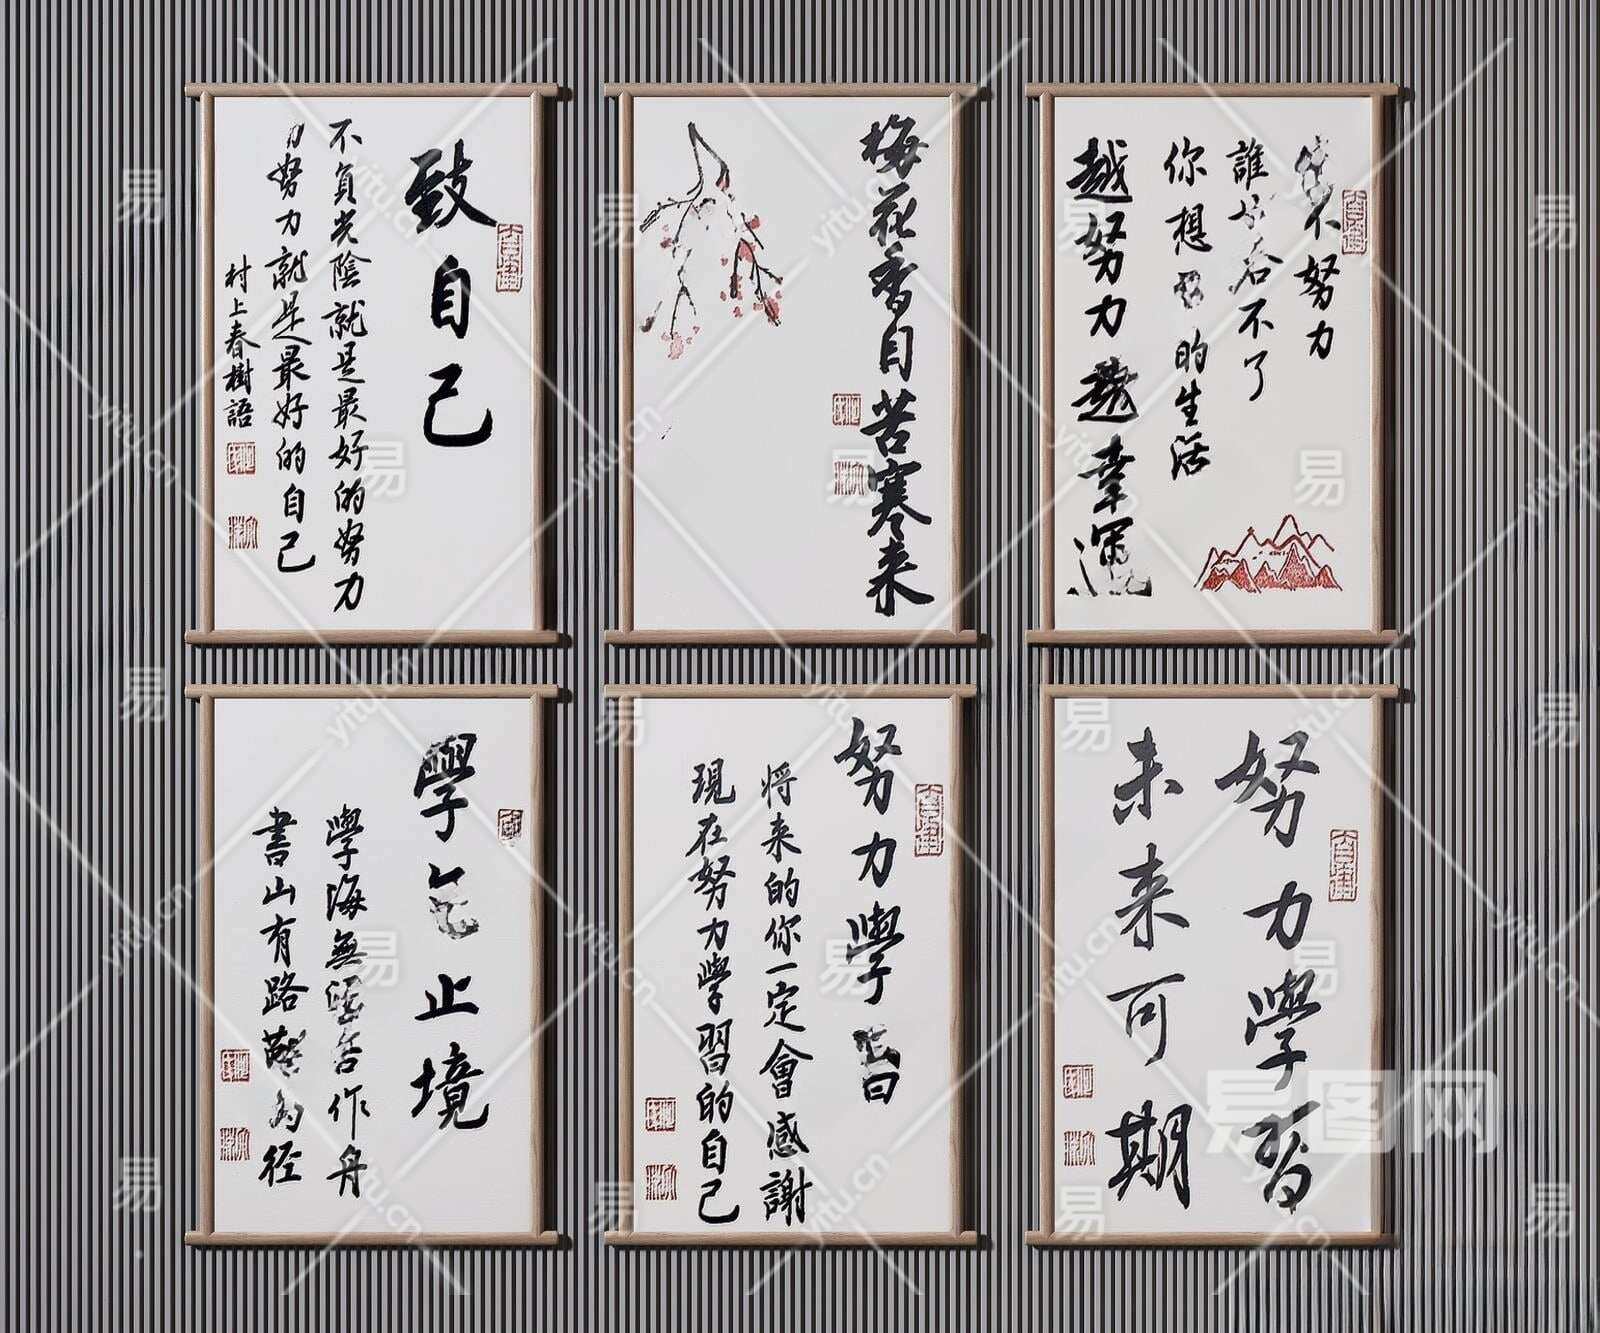 致自己
不負光陰就是最好的努力
努力就是最好的自己
村上春樹語
梅花香自苦寒来
不努力
誰 不了
你想 的生活
越努力越幸運
學 止境
學海無 作舟
書山有路 径
努力學
将来的你一定會感謝
現在努力學習的自己
努力學習
未来可期
易图网
yitu.cn